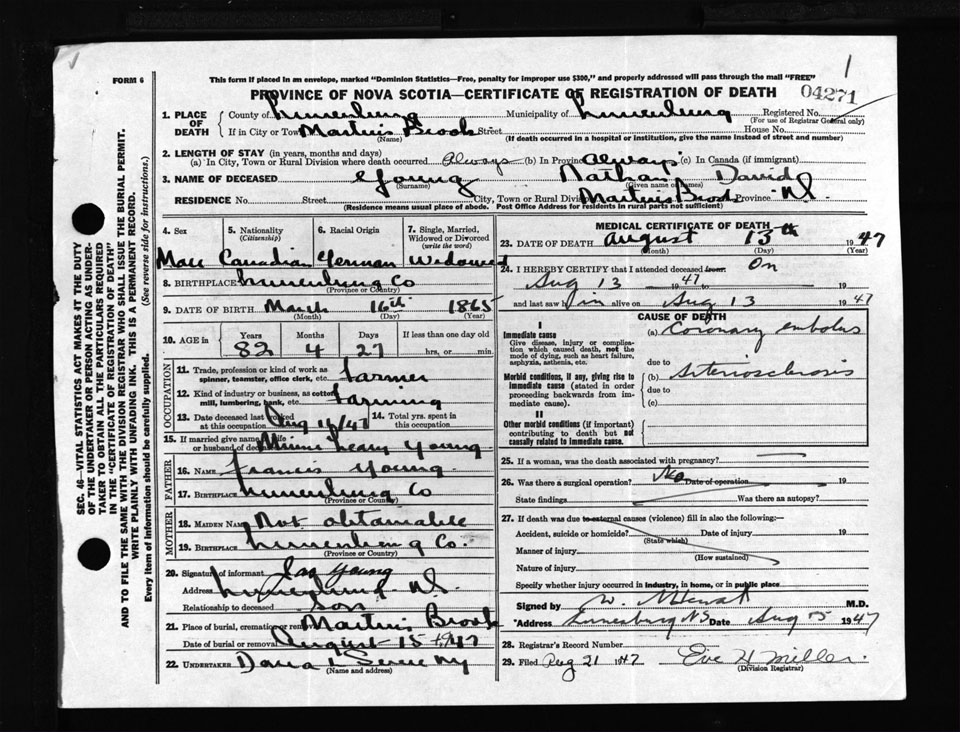 1
FORM 6
This form if placed in an envelope, marked "Dominion Statistics—Free, penalty for improper use $300," and properly addressed will pass through the mail "FREE"
PROVINCE OF NOVA SCOTIA—CERTIFICATE OF REGISTRATION OF DEATH
04271
1. PLACE OF DEATH
County of Lunenburg Municipality of Lunenburg Registered No.
(For use of Registrar General only)
If in City or Town Martin's Brook Street House No.
(Name) (If death occurred in a hospital or institution, give the name instead of street and number)
2. LENGTH OF STAY (in years, months and days)
(a) In City, Town or Rural Division where death occurred Always (b) In Province Always (c) In Canada (if immigrant)
3. NAME OF DECEASED Young Nathan David
(Surname) (Given name or names)
RESIDENCE No. Street City, Town or Rural Division Martin's Brook Province N.S.
(Residence means usual place of abode. Post Office Address for residents in rural parts not sufficient)
4. Sex 5. Nationality (Citizenship) 6. Racial Origin 7. Single, Married, Widowed or Divorced (write the word)
Male Canadian German Widowed
8. BIRTHPLACE Lunenburg Co
(Province or Country)
9. DATE OF BIRTH March 16th 1865
(Month) (Day) (Year)
10. AGE in Years Months Days If less than one day old
82 4 27 hrs. or min.
OCCUPATION
11. Trade, profession or kind of work as spinner, teamster, office clerk, etc. Farmer
12. Kind of industry or business, as cotton mill, lumbering, bank, etc. Farming
13. Date deceased last worked at this occupation Aug 11/47 14. Total yrs. spent in this occupation
15. If married give name of wife or husband of deceased Young
FATHER
16. NAME Francis Young
17. BIRTHPLACE Lunenburg Co
(Province or Country)
MOTHER
18. MAIDEN NAME Not obtainable
19. BIRTHPLACE Lunenburg Co.
(Province or Country)
20. Signature of informant Young
Address Lunenburg N.S.
Relationship to deceased Son
21. Place of burial, cremation or removal Martin's Brook
Date of burial or removal August 15 1947
22. UNDERTAKER
(Name and address)
MEDICAL CERTIFICATE OF DEATH
23. DATE OF DEATH August 13th 1947
(Month) (Day) (Year)
24. I HEREBY CERTIFY that I attended deceased from: On
Aug 13 1947 to 19
and last saw him alive on Aug 13 1947
CAUSE OF DEATH
I
Immediate cause
Give disease, injury or complication which caused death, not the mode of dying, such as heart failure, asphyxia, asthenia, etc.
(a) Coronary embolus
due to
Morbid conditions, if any, giving rise to immediate cause (stated in order proceeding backwards from immediate cause).
(b) Arteriosclerosis
due to
(c)
II
Other morbid conditions (if important) contributing to death but not causally related to immediate cause.
25. If a woman, was the death associated with pregnancy?
26. Was there a surgical operation? No Date of operation 19
State findings Was there an autopsy?
27. If death was due to external causes (violence) fill in also the following:—
Accident, suicide or homicide? Date of injury 19
(State which)
Manner of injury
(How sustained)
Nature of injury
Specify whether injury occurred in industry, in home, or in public place
Signed by M.D.
Address Lunenburg NS Date Aug 15 1947
28. Registrar's Record Number
29. Filed Aug 21 1947 H. Miller
(Division Registrar)
SEC. 46—VITAL STATISTICS ACT MAKES IT THE DUTY
OF THE UNDERTAKER OR PERSON ACTING AS UNDERTAKER
TO OBTAIN ALL THE PARTICULARS REQUIRED
IN THE "CERTIFICATE OF REGISTRATION OF DEATH"
AND TO FILE THE SAME WITH THE DIVISION REGISTRAR WHO SHALL ISSUE THE BURIAL PERMIT.
WRITE PLAINLY WITH UNFADING INK. THIS IS A PERMANENT RECORD.
Every item of information should be carefully supplied. (See reverse side for instructions.)